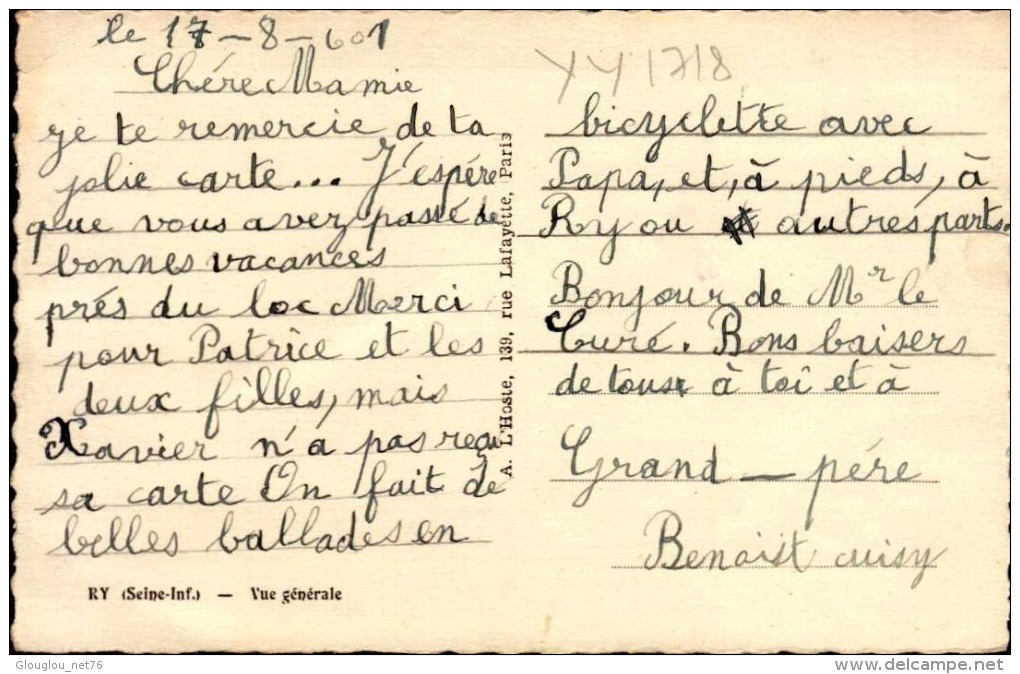 le 17-8-601
Chére Mamie
je te remercie de ta
jolie carte... J'éspére
que vous avez passé de
bonnes vacances
prés du loc Merci
pour Patrice et les
deux filles, mais
Xavier n'a pas reçu
sa carte On fait de
belles ballades en
RY (Seine-Inf.) — Vue générale
A. L'Hoste, 139, rue Lafayette, Paris
YY1718
bicyclette avec
Papa, et, à pieds, à
Ry ou autres parts.
Bonjour de Mr le
Curé. Bons baisers
de tous à toi et à
Grand-pére
Benoist cuisy
Glouglou_net76
www.delcampe.net